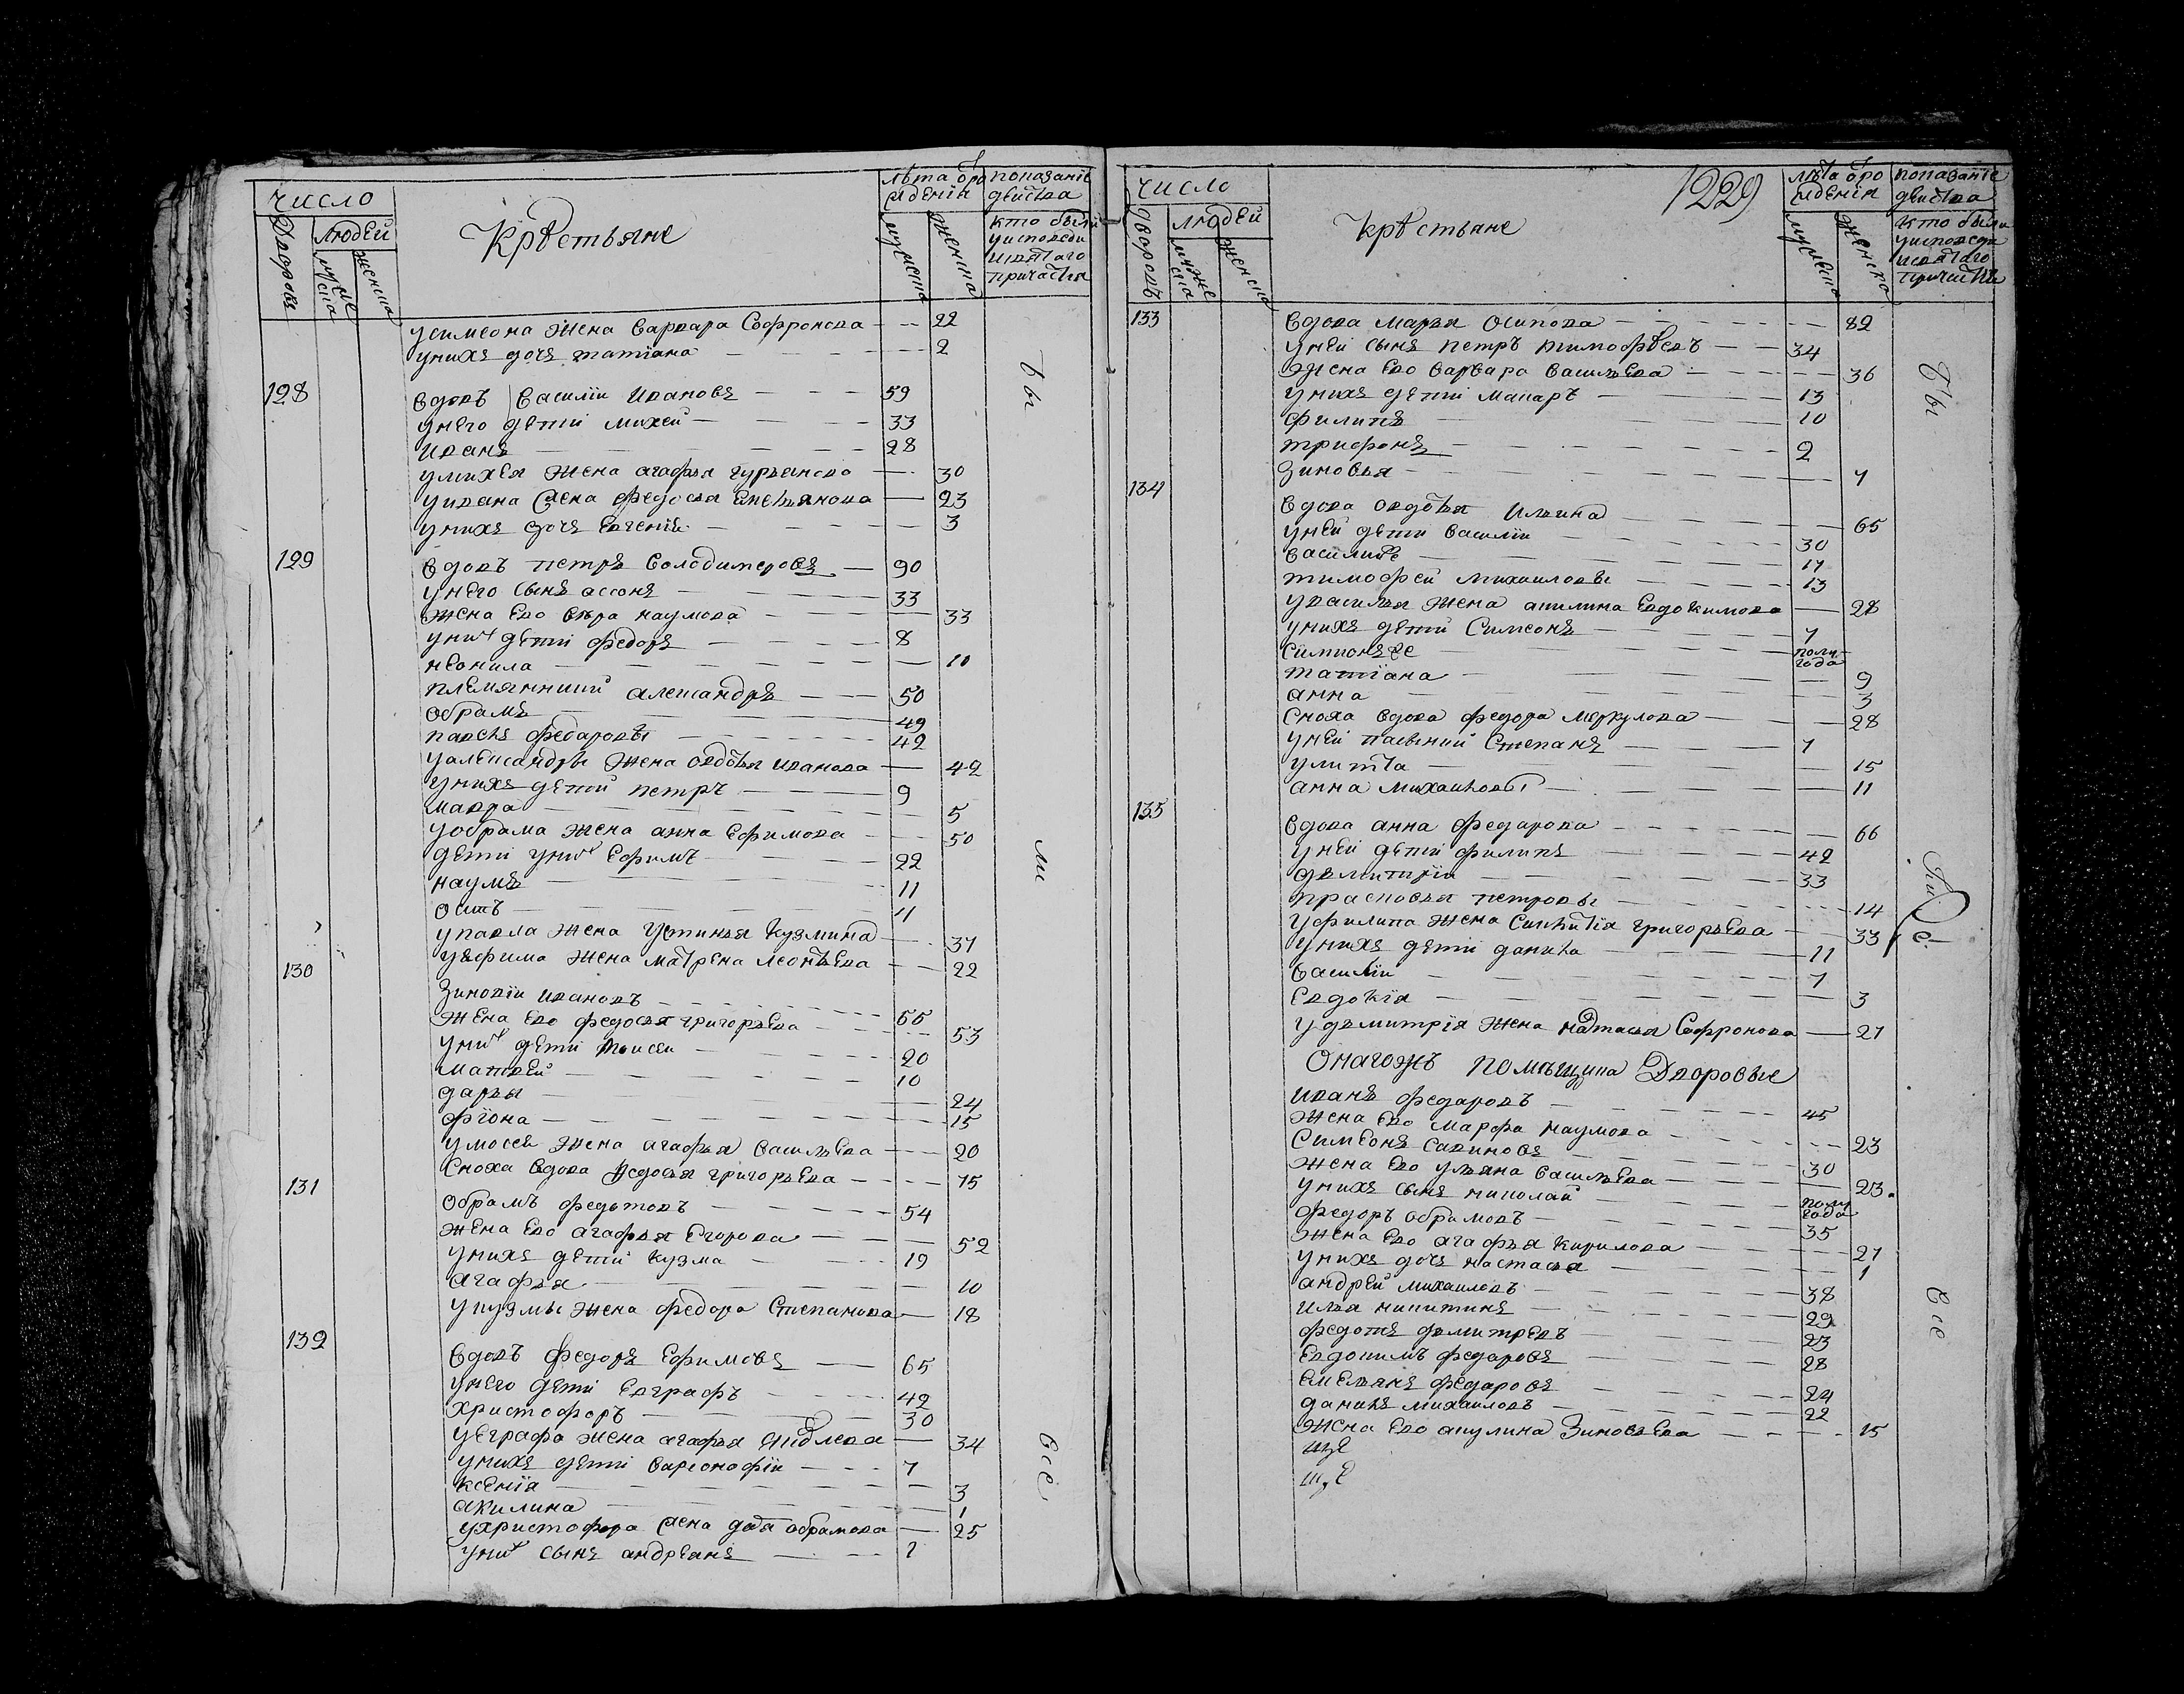 число
Дворовъ
людей
мужеска
женска
Крѣстьяне
лѣта о рождения
мужеска
женска
показание действа
кто были
у исповеди
и святаго
причастия
у симеона жена варвара Софронова 22
у нихъ дочь татиана 2
128 вдовъ василіи ивановъ 59
у него дети михеи 33
иванъ 28
у михея жена агафья гурьянова 30
у ивана жена федосья Емельянова 23
у нихъ дочь Евгения 3
129 вдовъ петръ володимеровъ 90
у него сынъ 33
жена Ево вера наумова 33
у них дети федоръ 8
неонила 10
племянники александръ 50
обрамъ 49
павелъ федоровы 42
у александры жена овдотья иванова 42
у нихъ дети петръ 9
мавра 5
у обрама жена анна Ефимова 50
дети у них Ефимъ 22
наумъ 11
осипъ 11
у павла жена устинья кузмина 37
у ефима жена матрена леонтьева 22
130 зиновіи ивановъ
жена Ево федосья григорьева 53
у них дети моисеи 20
матвеи 10
дарья 24
фіона 15
у мосея жена агафья васильева 20
сноха вдова федосья григорьева 75
131 обрамъ федотовъ 54
жена Ево агафья Егорова 52
у нихъ дети кузма 19
агафья 10
у кузмы жена федора Степанова 18
132 вдовъ федоръ Ефимовъ 65
у него дети Евграфъ 42
христофоръ 30
у еграфа жена агафья 34
у нихъ дети 7
ксения 3
акилина 1
у христофора жена обрамова 25
у них сынъ андреанъ 1
бы
ли
все
1229
число
дворовъ
людей
мужеска
женска
крѣстьяне
лѣта о рождения
мужеска
женска
показание действа
кто были
у исповеди
и святаго
причастия
133 вдова марья осипова 82
у ней сынъ петръ тимофѣевъ 34
жена Ево варвара васильева 36
у нихъ дети макаръ 13
филипъ 10
трифонъ 2
зиновья 7
134 вдова овдотья ильина 65
у ней дети василіи 30
василиі 17
тимофеи михаиловы 13
у василья жена акилина Евдокимова 28
у нихъ дети Симеонъ 7
Симионъ же полугода
татиана 9
анна 3
сноха вдова федора меркулова 28
у ней пасынки Степанъ 7
улита 15
анна михаиловы 11
135 вдова анна федарова 66
у ней дети филипъ 42
димитріи 33
прасковья петровы 14
у филипа жена григорьева 33
у нихъ дети данила 11
василіи 7
Евдокія 3
у димитрія жена настасья Софронова 27
Онагожъ помѣщика Дворовые
иванъ федаровъ 45
жена Ево марфа наумова 23
Симеонъ савиновъ 30
жена Ево ульяна васильева 23
у нихъ сынъ николаи полугода
федоръ обрамовъ 35
жена Ево агафья кирилова 27
у нихъ дочь настасья 1
андреи михаиловъ 38
илья никитинъ 29
федотъ димитревъ 23
Евдокимъ федаровъ 28
Емельянъ федаровъ 24
данила михаиловъ 22
жена Ево акулина Зиновьева 15
бы
все